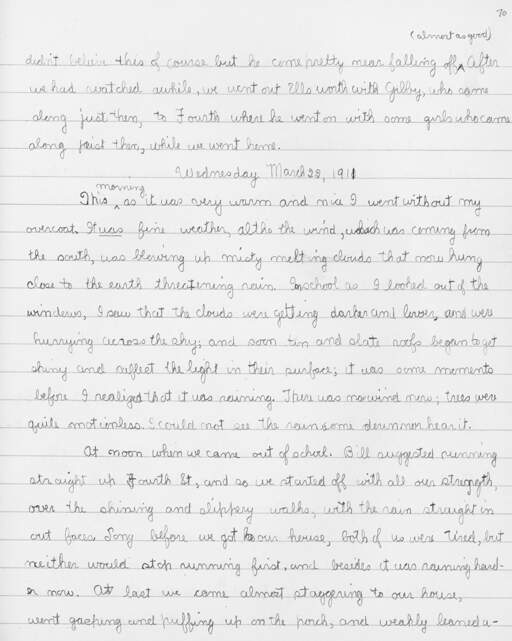 70
(almost as good)
didn't believe this of course but he came pretty near falling off ^ After
we had watched awhile, we went out Ellsworth with Gilby, who came
along just then, to Fourth where he went on with some girls who came
along just then, while we went home.
Wednesday March 28, 1911
morning
This ^ as it was very warm and nice I went without my
overcoat. It was fine weather, altho the wind, which was coming from
the south, was blowing up misty melting clouds that now hung
close to the earth threatening rain. In school as I looked out of the
windows, I saw that the clouds were getting darker and lower, and were
hurrying across the sky; and soon tin and slate roofs began to get
shiny and reflect the light in their surface; it was some moments
before I realized that it was raining. There was no wind now; trees were
quite motionless. I could not see the rain some down nor hear it.
At noon when we came out of school. Bill suggested running
straight up Fourth St, and so we started off with all our strength,
over the shining and slippery walks, with the rain straight in
out faces. Long before we got to our house, both of us were tired, but
neither would stop running first, and besides it was raining hard-
er now. At last we came almost staggering to our house,
went gasping and puffing up on the porch, and weakly leaned a-